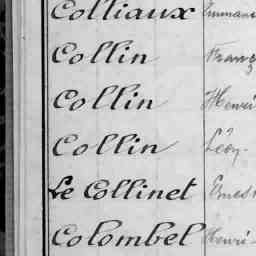 Colliaux Emman
Collin Franç
Collin Henri
Collin Léon
Le Collinet Ernes
Colombel Henri